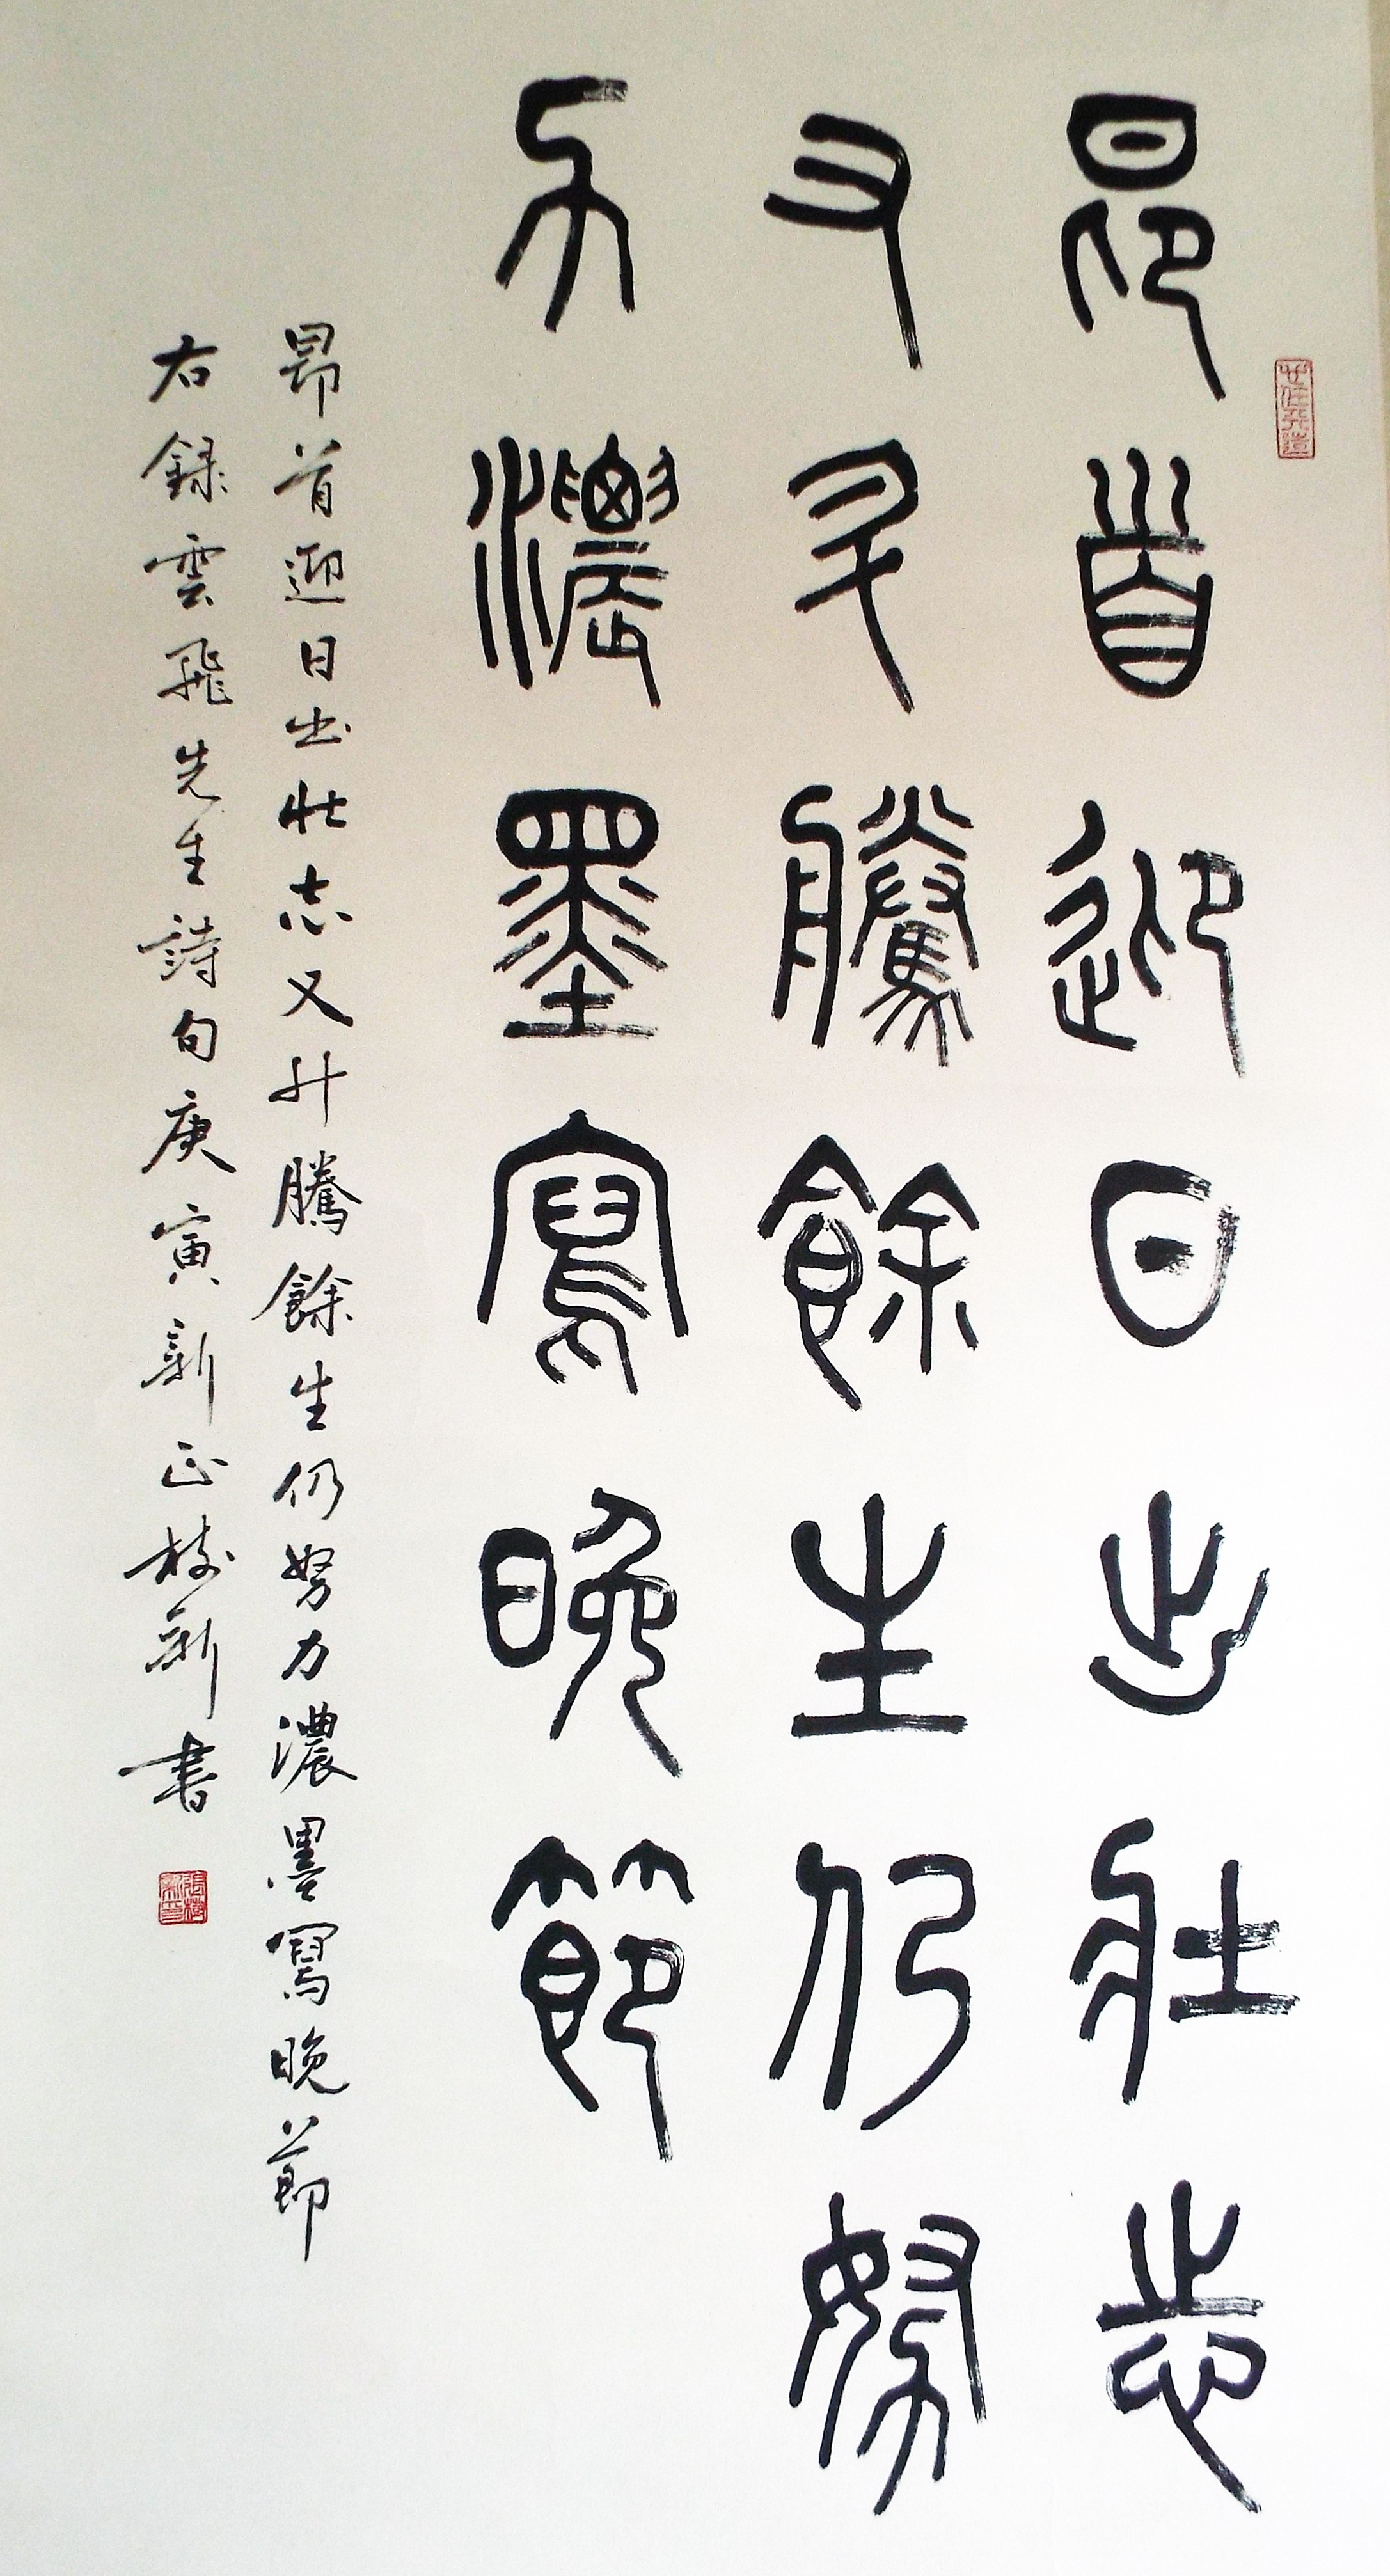 昂首迎日出壯志
又升騰餘生仍努
力濃墨寫晚節
昂首迎日出壯志又升騰餘生仍努力濃墨寫晚節
右錄雲飛先生詩句庚寅新正樹新書